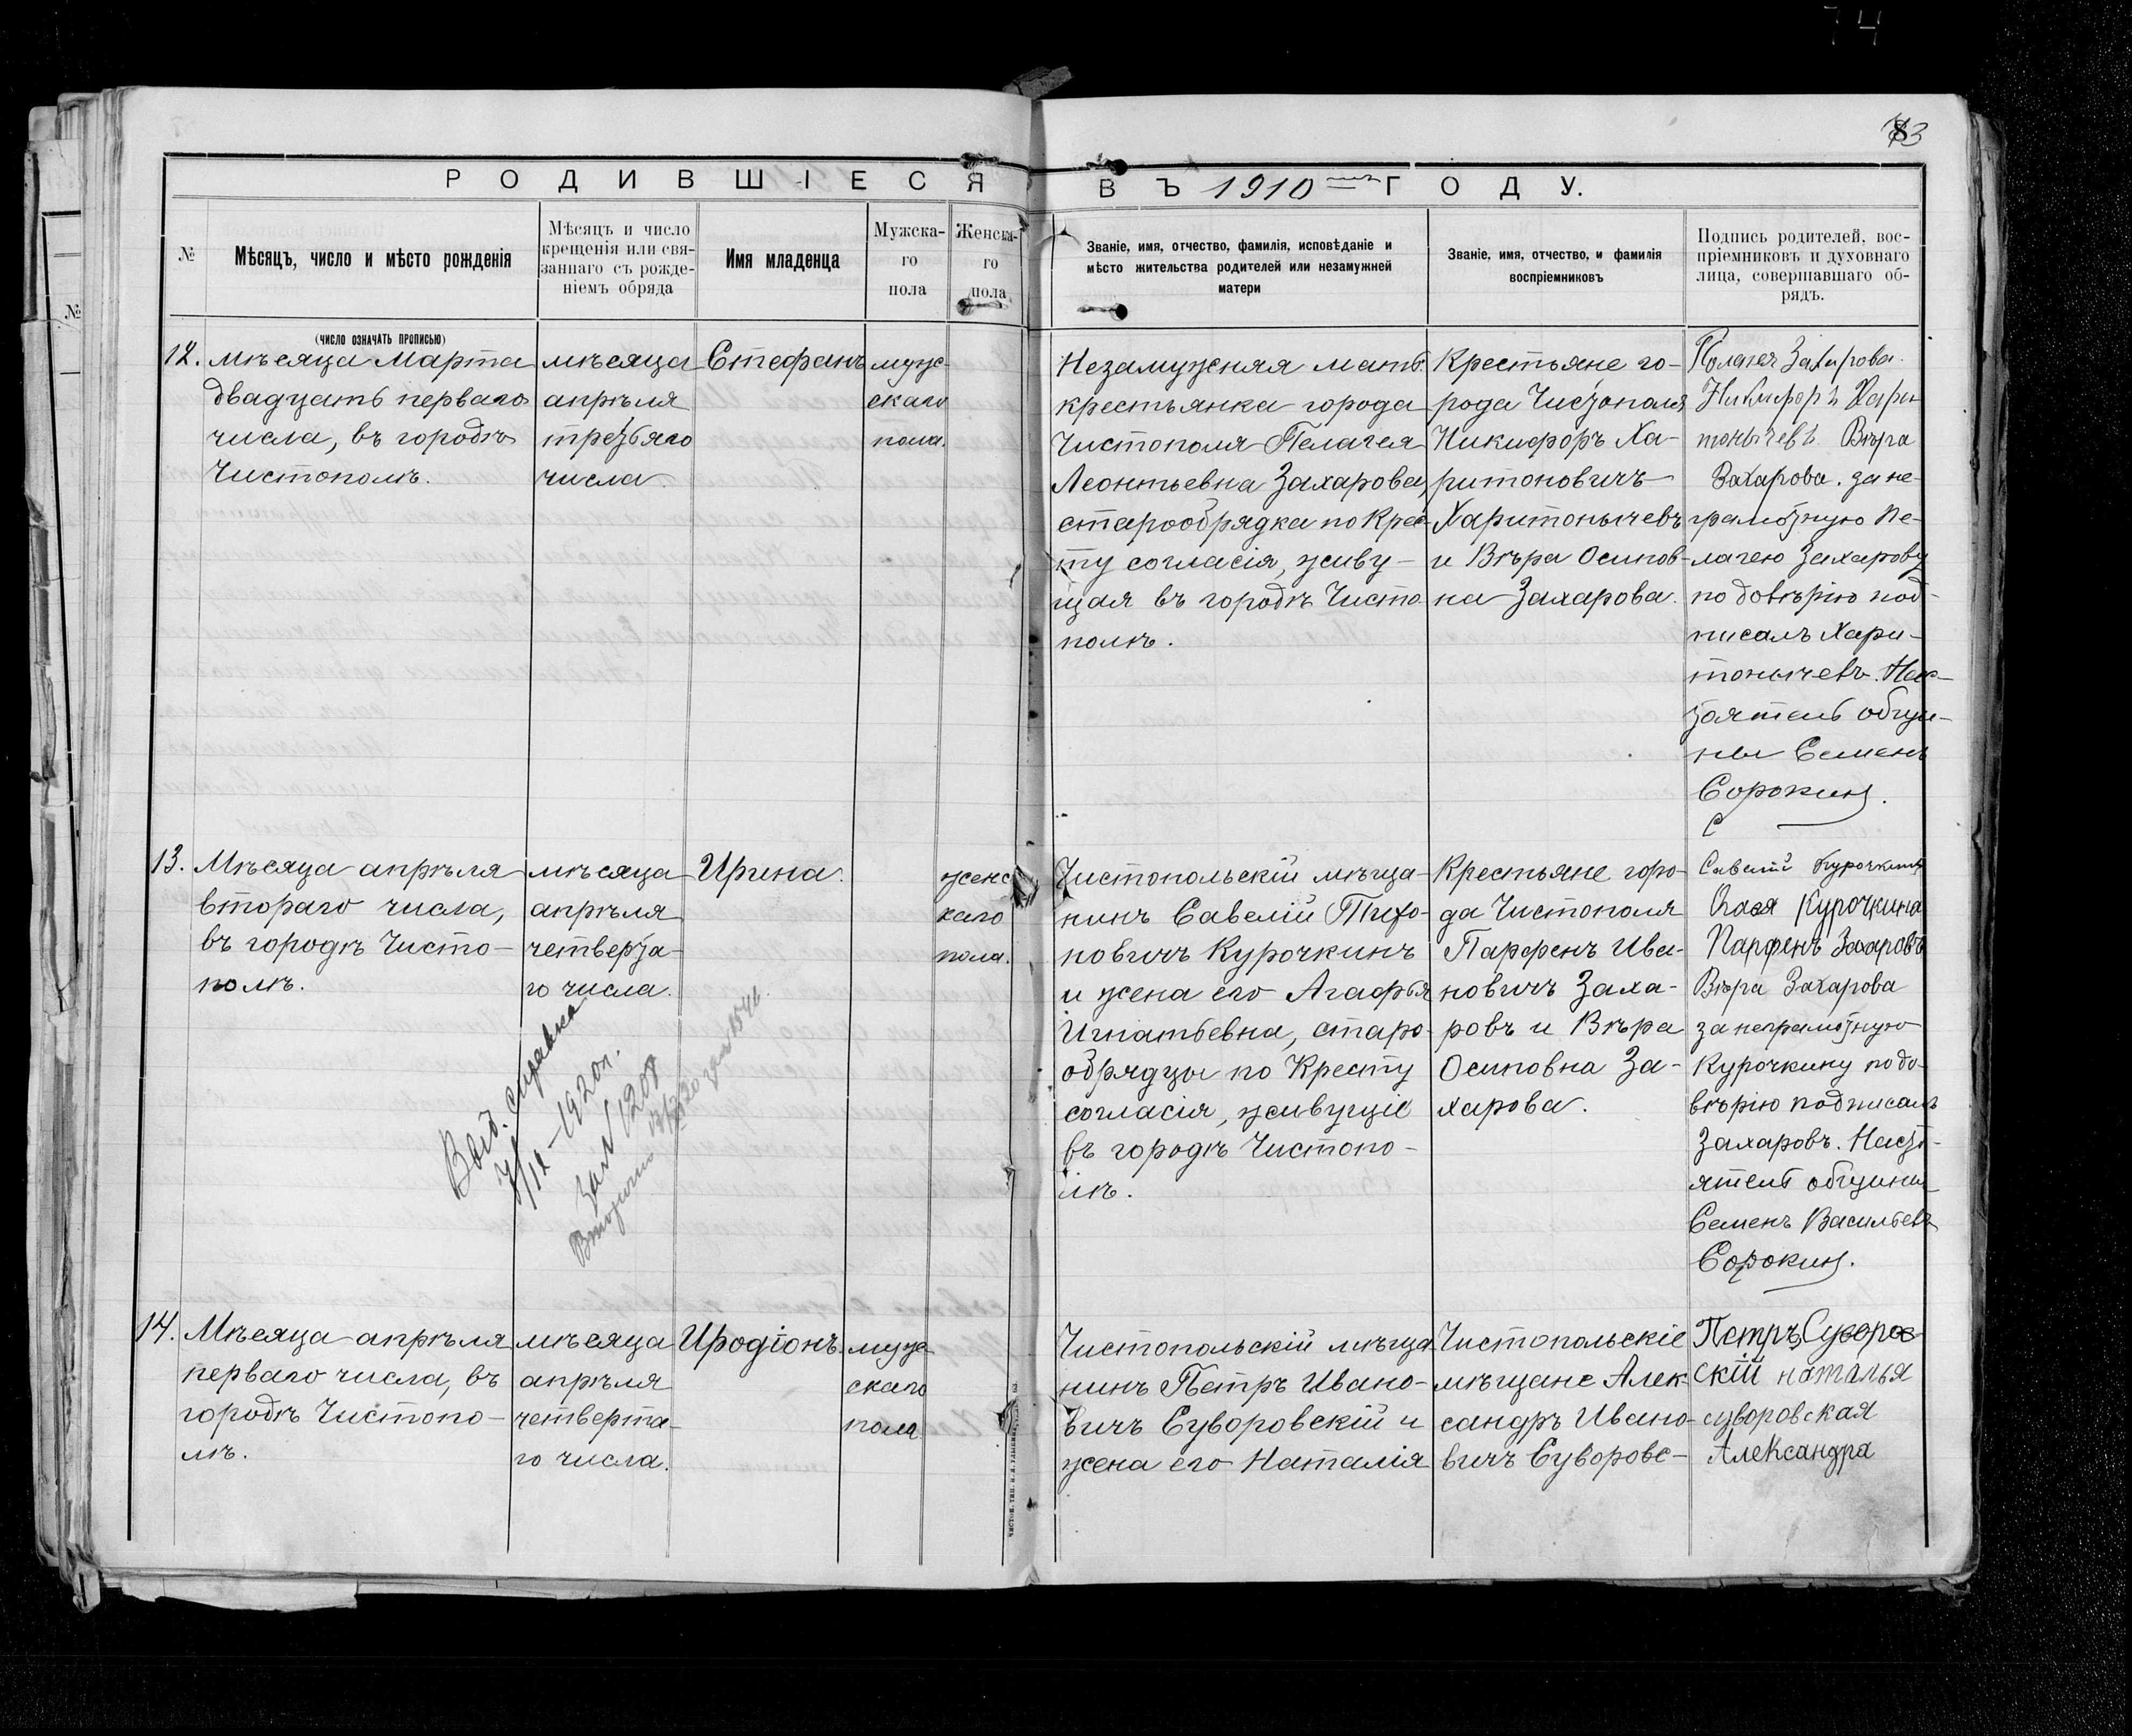 74
73
РОДИВШІЕСЯ
ВЪ 1910 ГОДУ.
№
№
Мѣсяцъ, число и мѣсто рожденія
Мѣсяцъ и число
крещенія или свя-
заннаго съ рожде-
ніемъ обряда
Имя младенца
Мужска-
го
пола
Женска-
го
пола
Званіе, имя, отчество, фамилія, исповѣданіе и
мѣсто жительства родителей или незамужней
матери
Званіе, имя, отчество, и фамилія
воспріемниковъ
Подпись родителей, вос-
пріемниковъ и духовнаго
лица, совершавшаго об-
рядъ.
(ЧИСЛО ОЗНАЧАТЬ ПРОПИСЬЮ)
12.
мѣсяца Марта
двадцать перваго
числа, въ городѣ
Чистополѣ.
мѣсяца
апрѣля
третьяго
числа
Стефанъ
муж-
скаго
пола.
Незамужняя мать
крестьянка города
Чистополя Пелагея
Леонтьевна Захарова,
старообрядка по Крес-
ту согласія, живу-
щая въ городѣ Чисто
полѣ.
Крестьяне го-
рода Чистополя
Никифоръ Ха-
ритоновичъ
Харитонычевъ
и Вѣра Осипов-
на Захарова.
Палагея Захарова.
Никифоръ Хари
тонычевъ Вѣра
Захарова. за не-
грамотную Пе-
лагею Захарову
по довѣрію под-
писалъ Хари-
тонычевъ. Нас-
тоятель общи-
ны Семенъ
Сорокинъ.
13.
Мѣсяца апрѣля
втораго числа,
въ городѣ Чисто-
полѣ.
мѣсяца
апрѣля
четверта-
го числа.
Ирина.
женс
каго
пола.
Чистопольскій мѣща-
нинъ Савелій Тихо-
новичъ Курочкинъ
и жена его Агафья
Игнатьевна, старо-
обрядцы по Кресту
согласія, живущіе
въ городѣ Чистопо-
лѣ.
Крестьяне горо-
да Чистополя
Парфенъ Ива-
новичъ Заха-
ровъ и Вѣра
Осиповна За-
харова.
Савелій Курочкинъ
Курочкина
Парфенъ Захаровъ
Вѣра Захарова
за неграмотную
Курочкину по до-
вѣрію подписалъ
Захаровъ. Насто-
ятель общины
Семенъ Васильевъ
Сорокинъ.
Выд. справка
1920г.
1208
Вторично
14.
Мѣсяца апрѣля
перваго числа, въ
городѣ Чистопо-
лѣ.
мѣсяца
апрѣля
четверта-
го числа.
Иродіонъ.
муж-
скаго
пола
Чистопольскій мѣща
нинъ Петръ Ивано-
вичъ Суворовскій и
жена его Наталія
Чистопольскіе
мѣщане Алек-
сандръ Ивано-
вичъ Суворовс-
Петръ Суворов
скій наталья
суворовская
Александра